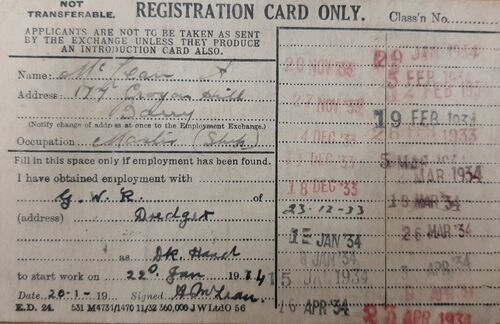 NOT
TRANSFERABLE.
REGISTRATION CARD ONLY.
Class'n No.
APPLICANTS ARE NOT TO BE TAKEN AS SENT
BY THE EXCHANGE UNLESS THEY PRODUCE
AN INTRODUCTION CARD ALSO.
Name: McLean A
Address: 174 Hill
Barry
(Notify change of address at once to the Employment Exchange.)
Occupation
Fill in this space only if employment has been found.
I have obtained employment with
G. W. R. of
(address) Dredger
as Dk. Hand
to start work on 22d. Jan 1934
Date 20-1- 19 Signed A McLean.
E.D. 24. 531 M4731/1470 11/32 360,000 JWLdO 56
20 NOV '33
27 NOV '33
4 DEC '33
DEC '33
18 DEC '33
23-12-33
JAN '34
JAN '34
15 JAN 1934
16 APR '34
29 JAN 1934
5 FEB 1934
FEB 1934
19 FEB 1934
1933
5 MAR 1934
MAR 1934
19 MAR '34
26 MAR '34
APR '34
APR 1934
APR 1934